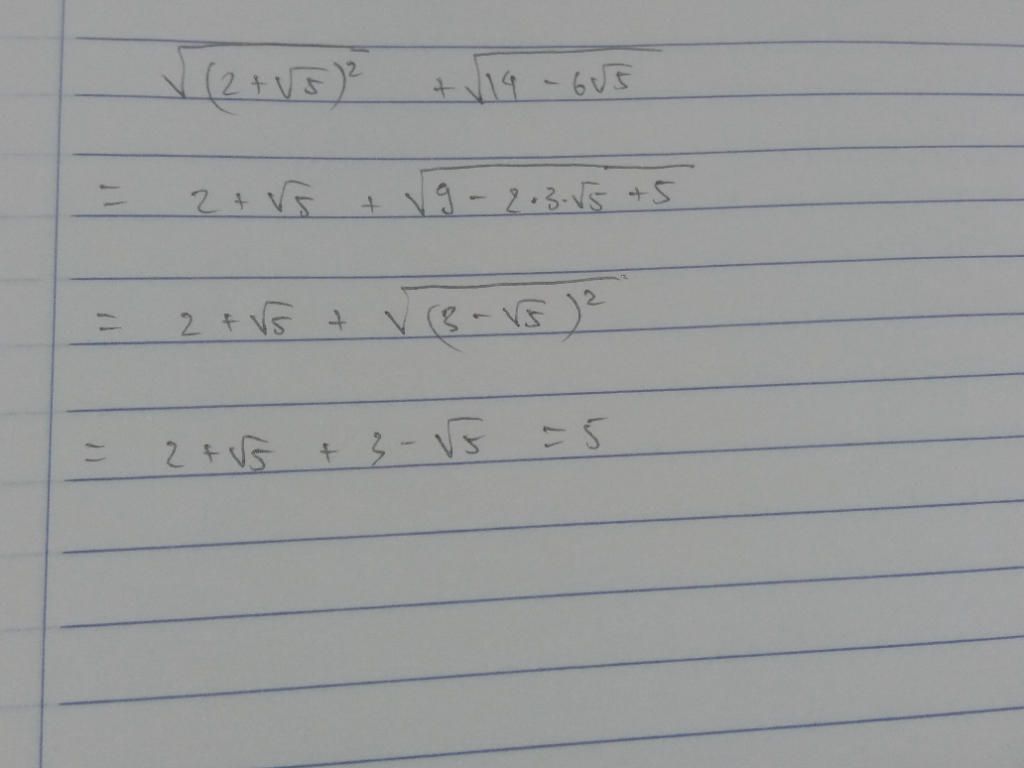 √(2+√5)² + √14 - 6√5
= 2 + √5 + √9 - 2·3·√5 + 5
= 2 + √5 + √(3 - √5)²
= 2 + √5 + 3 - √5 = 5